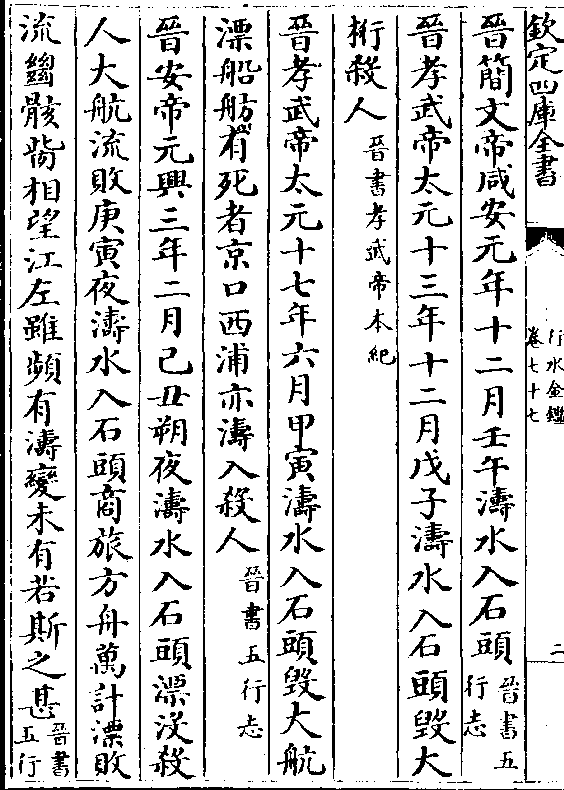 欽定四庫全書
行水金鑑
卷七十七
二
晉簡文帝咸安元年十二月壬午濤水入石頭晉書五行志
晉孝武帝太元十三年十二月戊子濤水入石頭毀大
桁殺人晉書孝武帝本紀
晉孝武帝太元十七年六月甲寅濤水入石頭毀大航
漂船舫有死者京口西浦亦濤入殺人晉書五行志
晉安帝元興三年二月己丑朔夜濤水入石頭漂沒殺
人大航流敗庚寅夜濤水入石頭商旅方舟萬計漂敗
流斷骸胔相望江左雖頻有濤變未有若斯之甚晉書五行